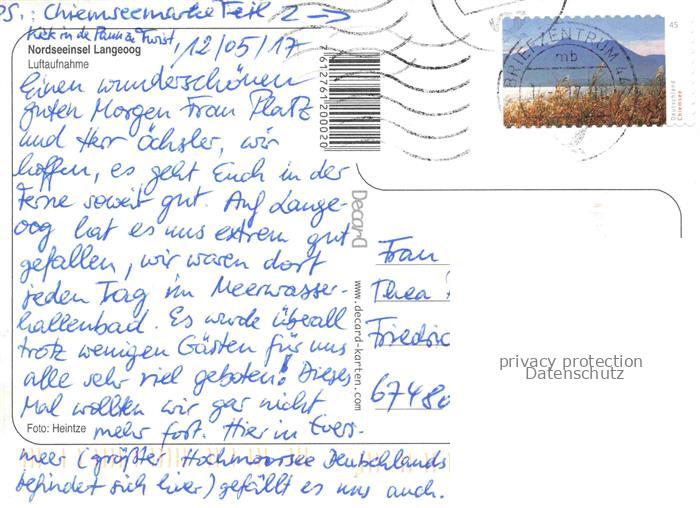 PS.: Chiemseemarke Teil 2 →
12/05/17
Nordseeinsel Langeoog
Luftaufnahme
Einen wunderschönen
guten Morgen Frau Platz
und Herr Öchsler, wir
hoffen, es geht Euch in der
Ferne soweit gut. Auf Lange-
oog hat es uns extrem gut
gefallen, wir waren dort
jeden Tag im Meerwasser-
hallenbad. Es wurde überall
trotz wenigen Gästen für uns
alle sehr viel geboten! Dieses
Mal wollten wir gar nicht
Foto: Heintze
mehr fort. Hier in Evers-
meer (größter Hochmoorsee Deutschlands
befindet sich hier) gefällt es uns auch.
7612761200020
DecarD
www.decard-karten.com
BRIEFZENTRUM
mb
45
Deutschland
Chiemsee
Frau
Thea
Friedric
67480
privacy protection
Datenschutz